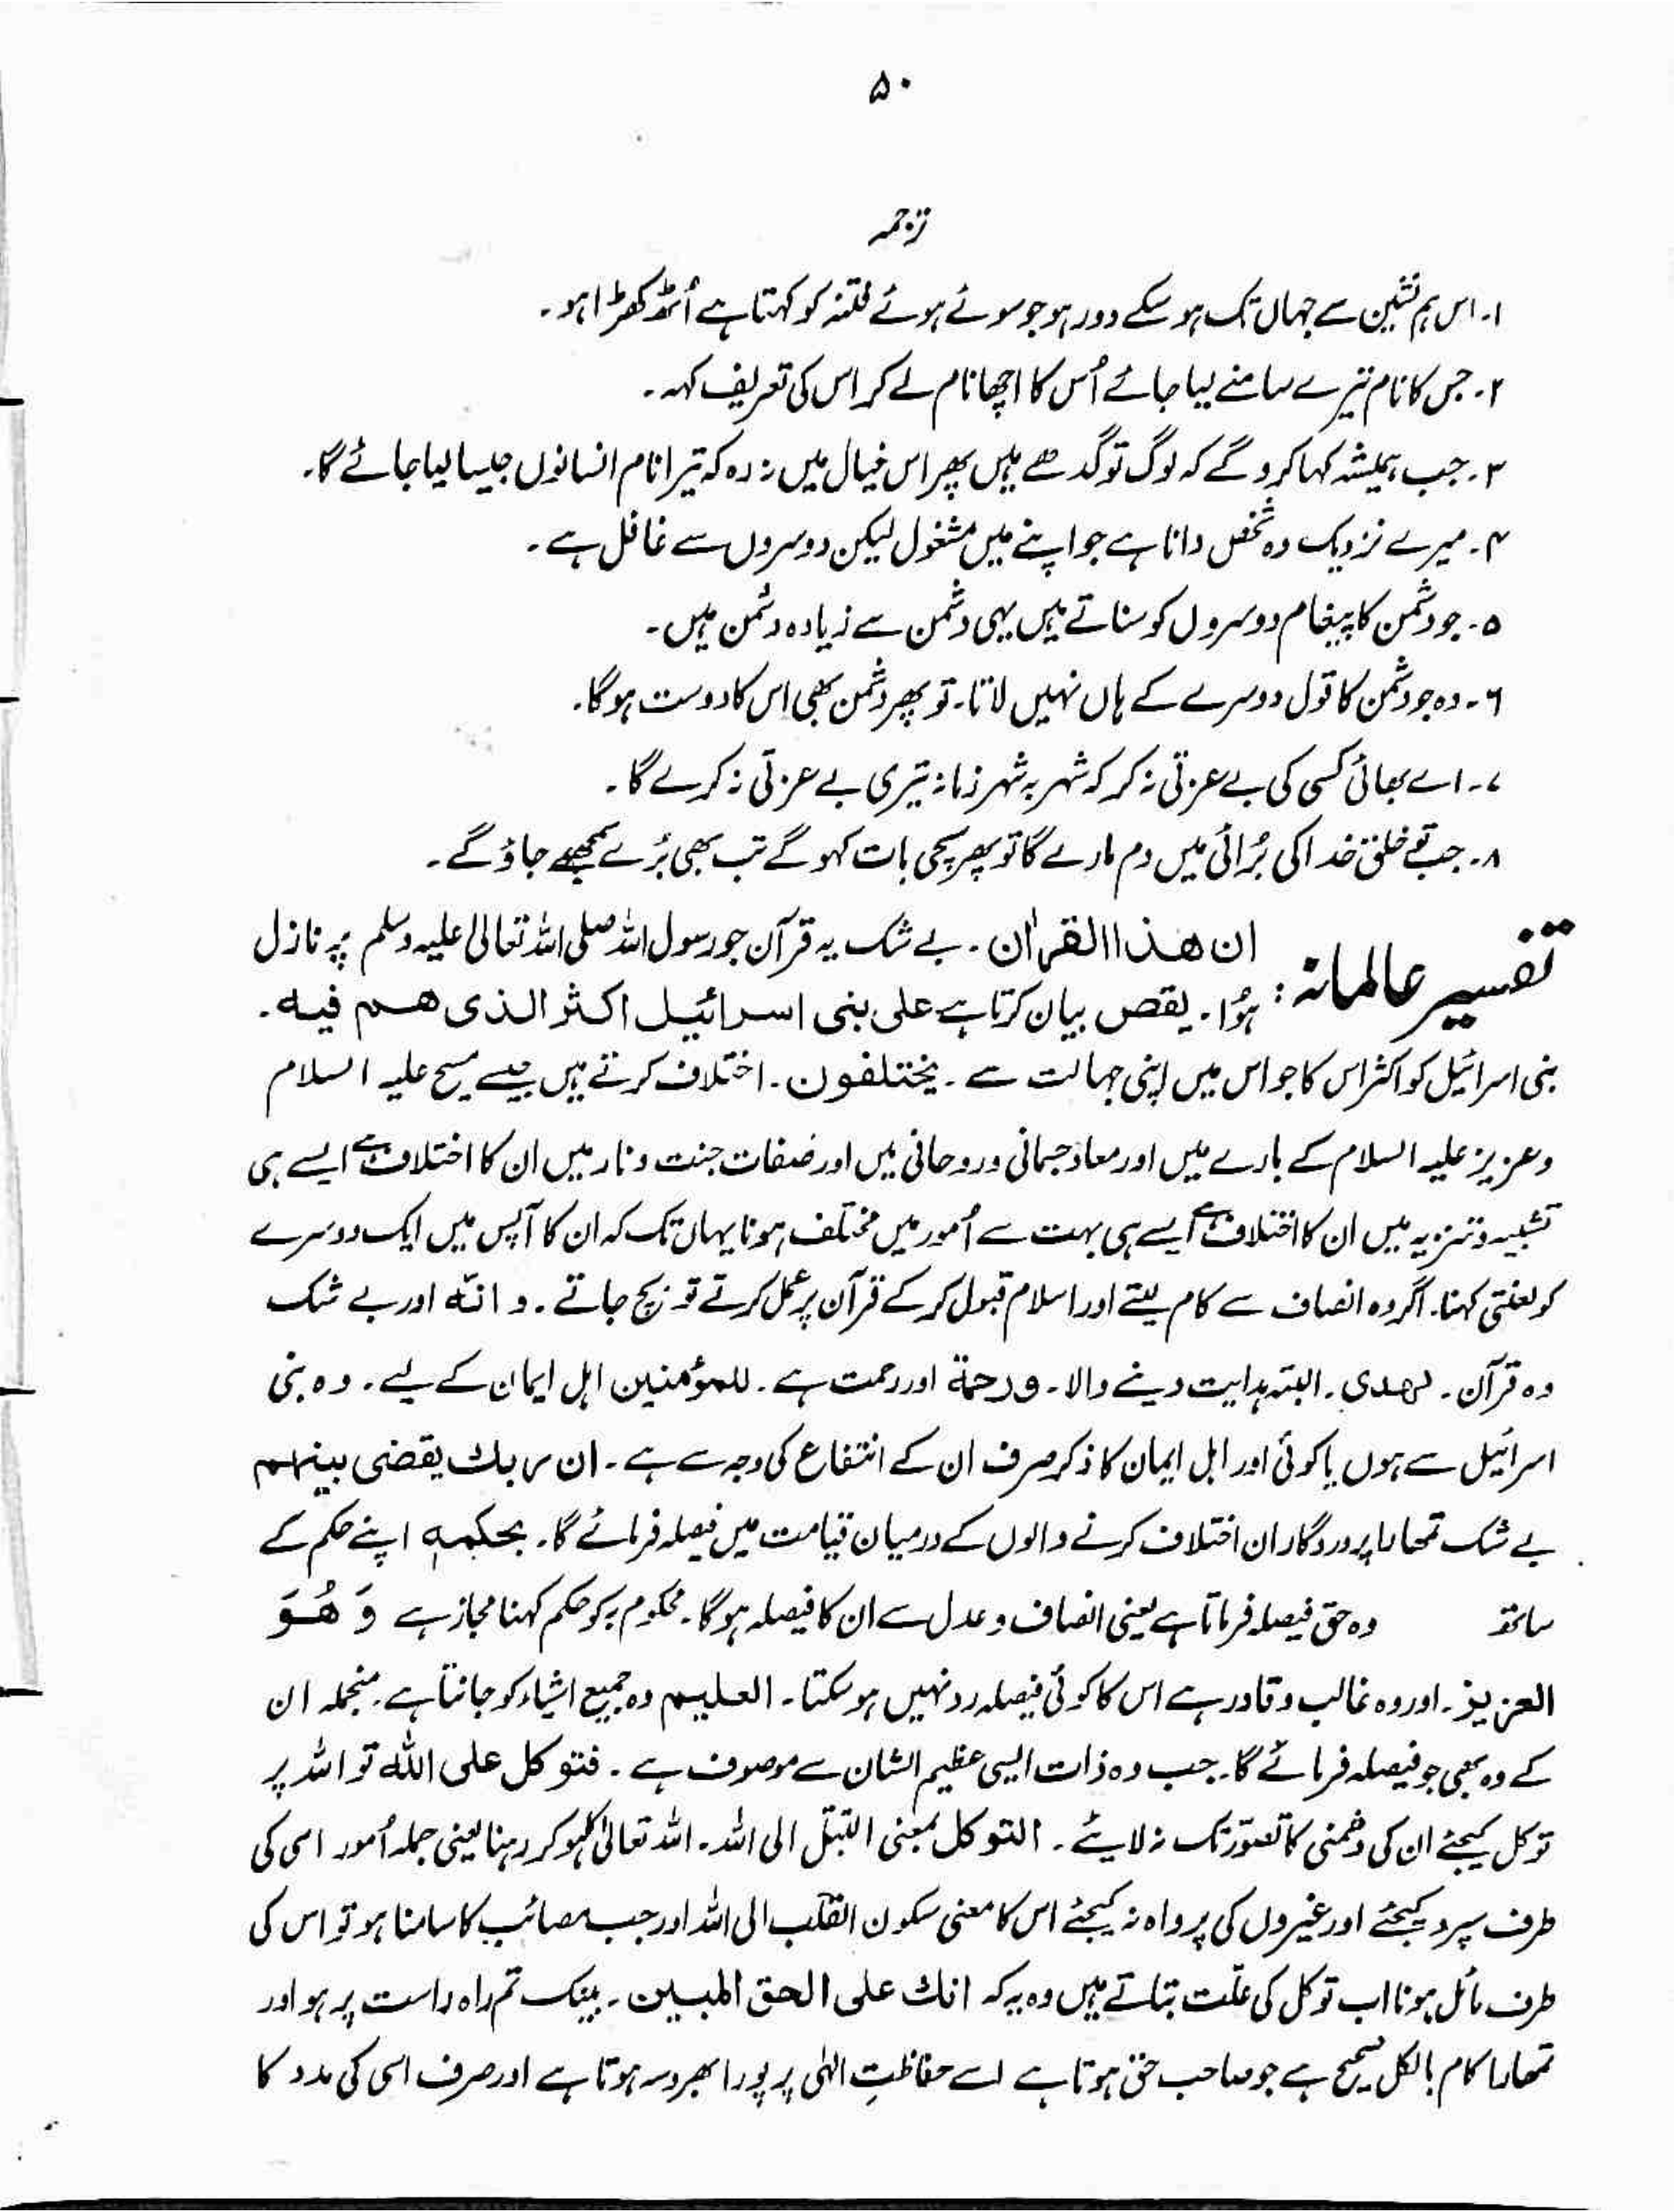 ۵۰
ترجمہ
۱۔ اس ہم نشین سے جہاں تک ہو سکے دور ہو جو سوئے ہوئے فتنہ کو کہتا ہے اُٹھ کھڑا ہو۔
۲۔ جس کا نام تیرے سامنے لیا جائے اُس کا اچھا نام لے کر اس کی تعریف کہہ۔
۳۔ جب ہمیشہ کہا کرو گے کہ لوگ تو گدھے ہیں پھر اس خیال میں نہ رہ کہ تیرا نام انسانوں جیسا لیا جائے گا۔
۴۔ میرے نزدیک وہ شخص دانا ہے جو اپنے میں مشغول لیکن دوسروں سے غافل ہے۔
۵۔ جو دشمن کا پیغام دوسروں کو سناتے ہیں یہی دشمن سے زیادہ دشمن ہیں۔
۶۔ وہ جو دشمن کا قول دوسرے کے ہاں نہیں لاتا۔ تو پھر دشمن بھی اس کا دوست ہوگا۔
۷۔ اے بھائی کسی کی بے عزتی نہ کر کہ شہر بہ شہر زمانہ تیری بے عزتی نہ کرے گا۔
۸۔ جب تو خلق خدا کی بُرائی میں دم مارے گا تو پھر سچی بات کہو گے تب بھی بُرے سمجھے جاؤ گے۔
تفسیر عالمانہ : ان ھذا القراٰن۔ بے شک یہ قرآن جو رسول اللہ صلی اللہ تعالیٰ علیہ وسلم پر نازل
ہُوا۔ یقص بیان کرتا ہے علی بنی اسرائیل اکثر الذی ھم فیہ۔
بنی اسرائیل کو اکثر اس کا جو اس میں اپنی جہالت سے۔ یختلفون۔ اختلاف کرتے ہیں جیسے مسیح علیہ السلام
و عزیز علیہ السلام کے بارے میں اور معاد جسمانی و روحانی میں اور صفات جنت و نار میں ان کا اختلاف ہے ایسے ہی
تشبیہ و تنزیہ میں ان کا اختلاف ہے ایسے ہی بہت سے اُمور میں مختلف ہونا یہاں تک کہ ان کا آپس میں ایک دوسرے
کو لعنتی کہنا۔ اگر وہ انصاف سے کام لیتے اور اسلام قبول کر کے قرآن پر عمل کرتے تو بچ جاتے۔ و انّہ اور بے شک
وہ قرآن۔ لھدی۔ البتہ ہدایت دینے والا۔ ورحمۃ اور رحمت ہے۔ للمؤمنین اہل ایمان کے لیے۔ وہ بنی
اسرائیل سے ہوں یا کوئی اور اہل ایمان کا ذکر صرف ان کے انتفاع کی وجہ سے ہے۔ ان ربك یقضی بینھم
بے شک تمھارا پروردگار ان اختلاف کرنے والوں کے درمیان قیامت میں فیصلہ فرمائے گا۔ بحکمہ اپنے حکم کے
ساتھ وہ حق فیصلہ فرماتا ہے یعنی انصاف و عدل سے ان کا فیصلہ ہوگا۔ محکوم بہ کو حکم کہنا مجاز ہے وَ ھُوَ
العزیز۔ اور وہ غالب و قادر ہے اس کا کوئی فیصلہ رد نہیں ہو سکتا۔ العلیم وہ جمیع اشیاء کو جانتا ہے۔ منجملہ ان
کے وہ بھی جو فیصلہ فرمائے گا۔ جب وہ ذات ایسی عظیم الشان سے موصوف ہے۔ فتوکل علی اللہ تو اللہ پر
توکل کیجئے ان کی دشمنی کا تصوّر تک نہ لایئے۔ التوکل بمعنی التبتل الی اللہ۔ اللہ تعالیٰ کا ہو کر رہنا یعنی جملہ اُمور اسی کی
طرف سپرد کیجئے اور غیروں کی پرواہ نہ کیجئے اس کا معنی سکون القلب الی اللہ اور جب مصائب کا سامنا ہو تو اس کی
طرف مائل ہونا اب توکل کی علّت بتاتے ہیں وہ یہ کہ انك علی الحق المبین۔ بیشک تم راہ راست پر ہو اور
تمھارا کام بالکل صحیح ہے جو صاحب حق ہوتا ہے اسے حفاظتِ الٰہی پر پورا بھروسہ ہوتا ہے اور صرف اسی کی مدد کا